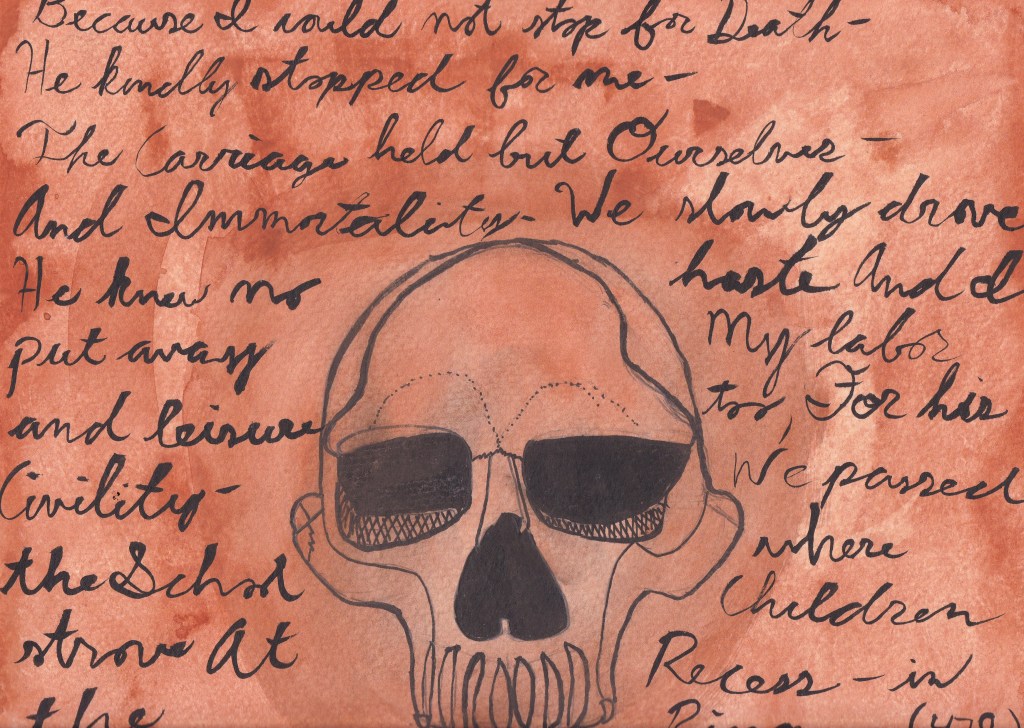 Because I could not stop for Death-
He kindly stopped for me-
The Carriage held but Ourselves-
And Immortality- We slowly drove
He knew no haste And I
put away My labor
and leisure too, For his
Civility- We passed
the School where
strove At Children
the Recess - in
Ring (479)